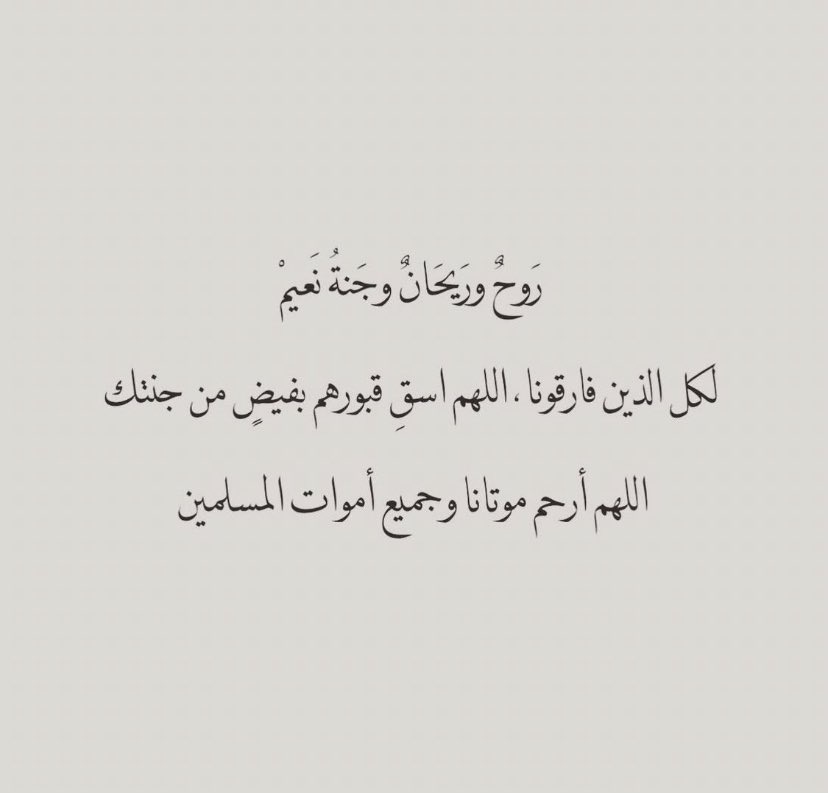 رَوحٌ ورَيحَانٌ وجَنةُ نَعيمْ
لكل الذين فارقونا ، اللهم اسقِ قبورهم بفيضٍ من جنتك
اللهم أرحم موتانا وجميع أموات المسلمين